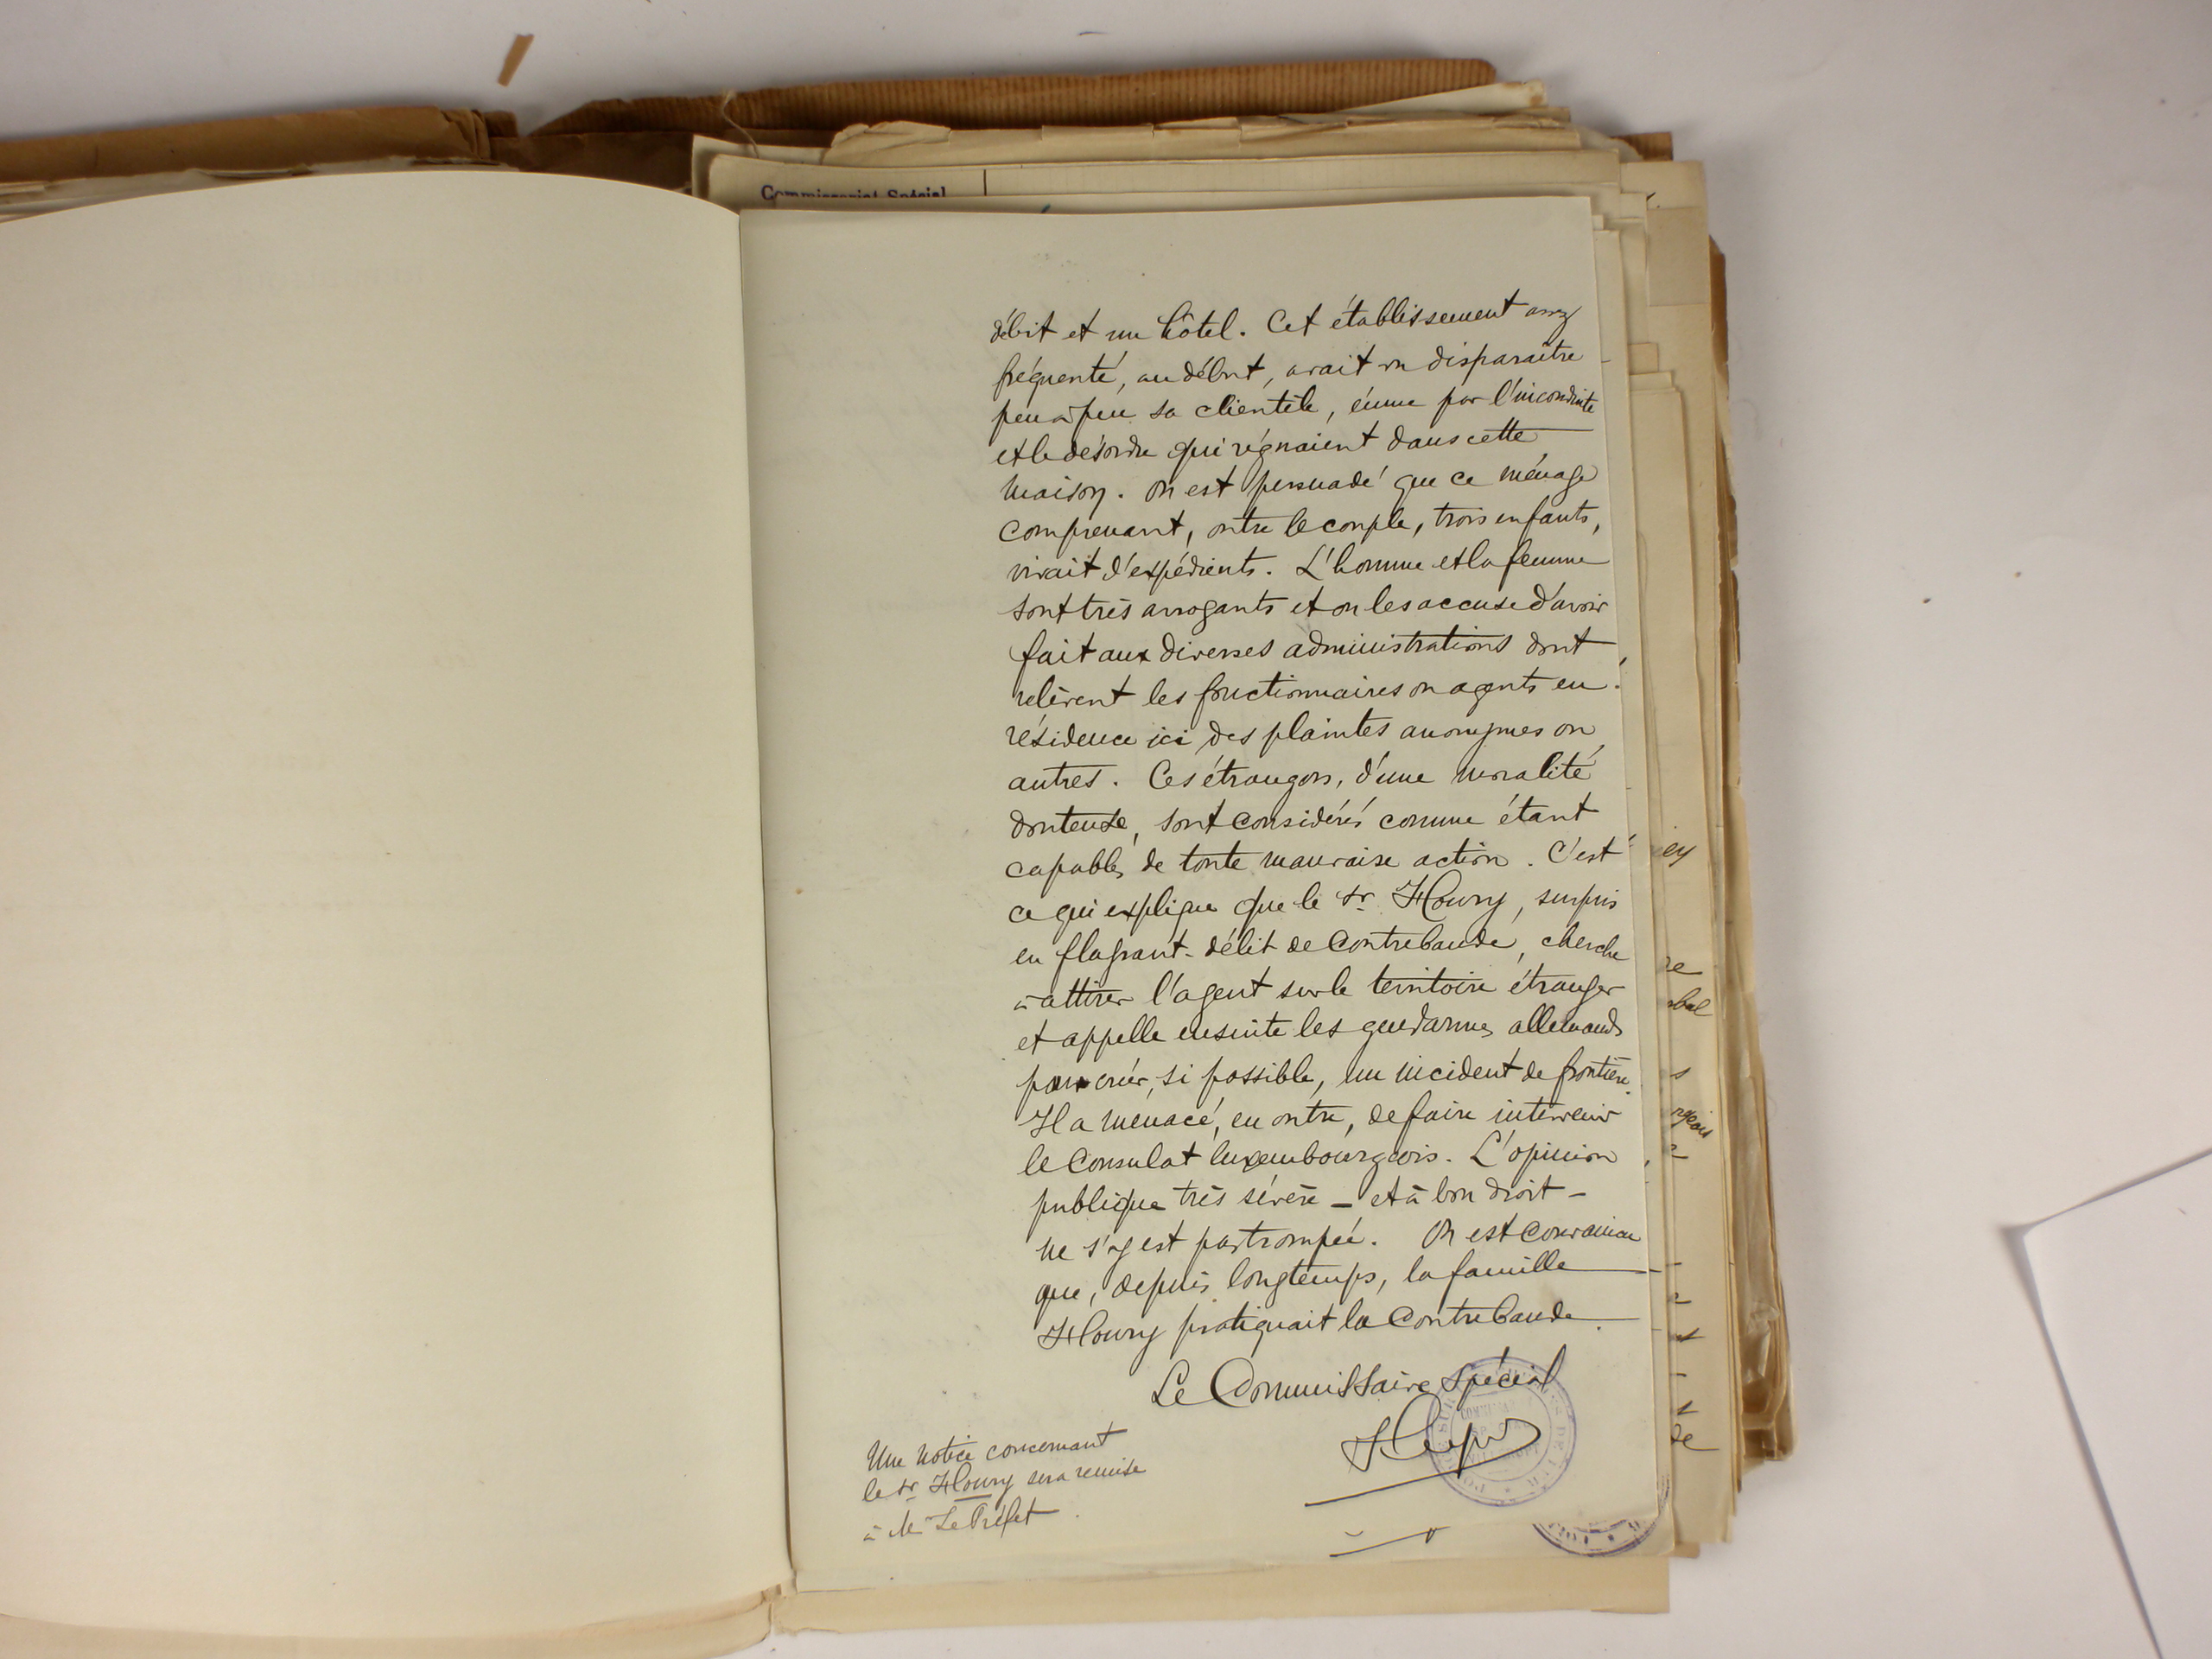 Commissariat Spécial
débit et un hôtel. Cet établissement assez
fréquenté, au début, avait vu disparaître
peu à peu sa clientèle, émue par l'inconduite
et le désordre qui régnaient dans cette
maison. On est persuadé que ce ménage
comprenant, outre le couple, trois enfants,
vivait d'expédients. L'homme et la femme
sont très arrogants et on les accuse d'avoir
fait aux diverses administrations dont
relèvent les fonctionnaires ou agents en
résidence ici des plaintes anonymes ou
autres. Ces étrangers, d'une moralité
douteuse, sont considérés comme étant
capables de toute mauvaise action. C'est
ce qui explique que le Sr Houry, surpris
en flagrant-délit de contrebande, cherche
à attirer l'agent sur le territoire étranger
et appelle ensuite les gendarmes allemands
pour créer, si possible, un incident de frontière.
Il a menacé, en outre, de faire intervenir
le Consulat luxembourgeois. L'opinion
publique très sévère – et à bon droit –
ne s'y est pas trompée. On est convaincu
que, depuis longtemps, la famille
Houry pratiquait la contrebande.
Le Commissaire Spécial
Une notice concernant
le Sr Houry sera remise
à M. Le Préfet